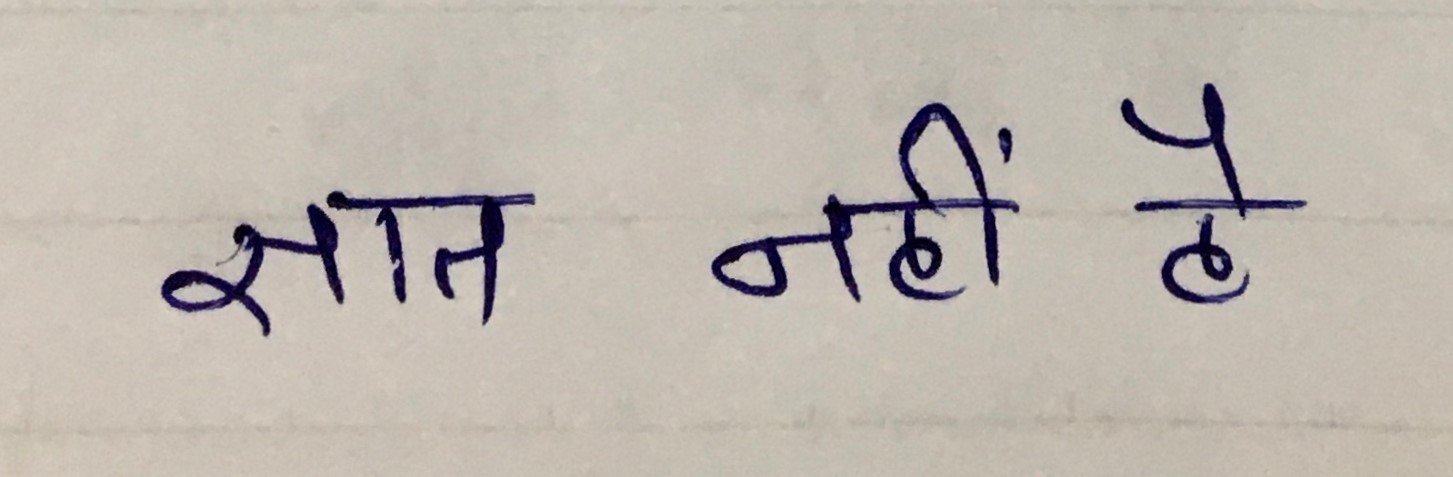 सात नहीं है